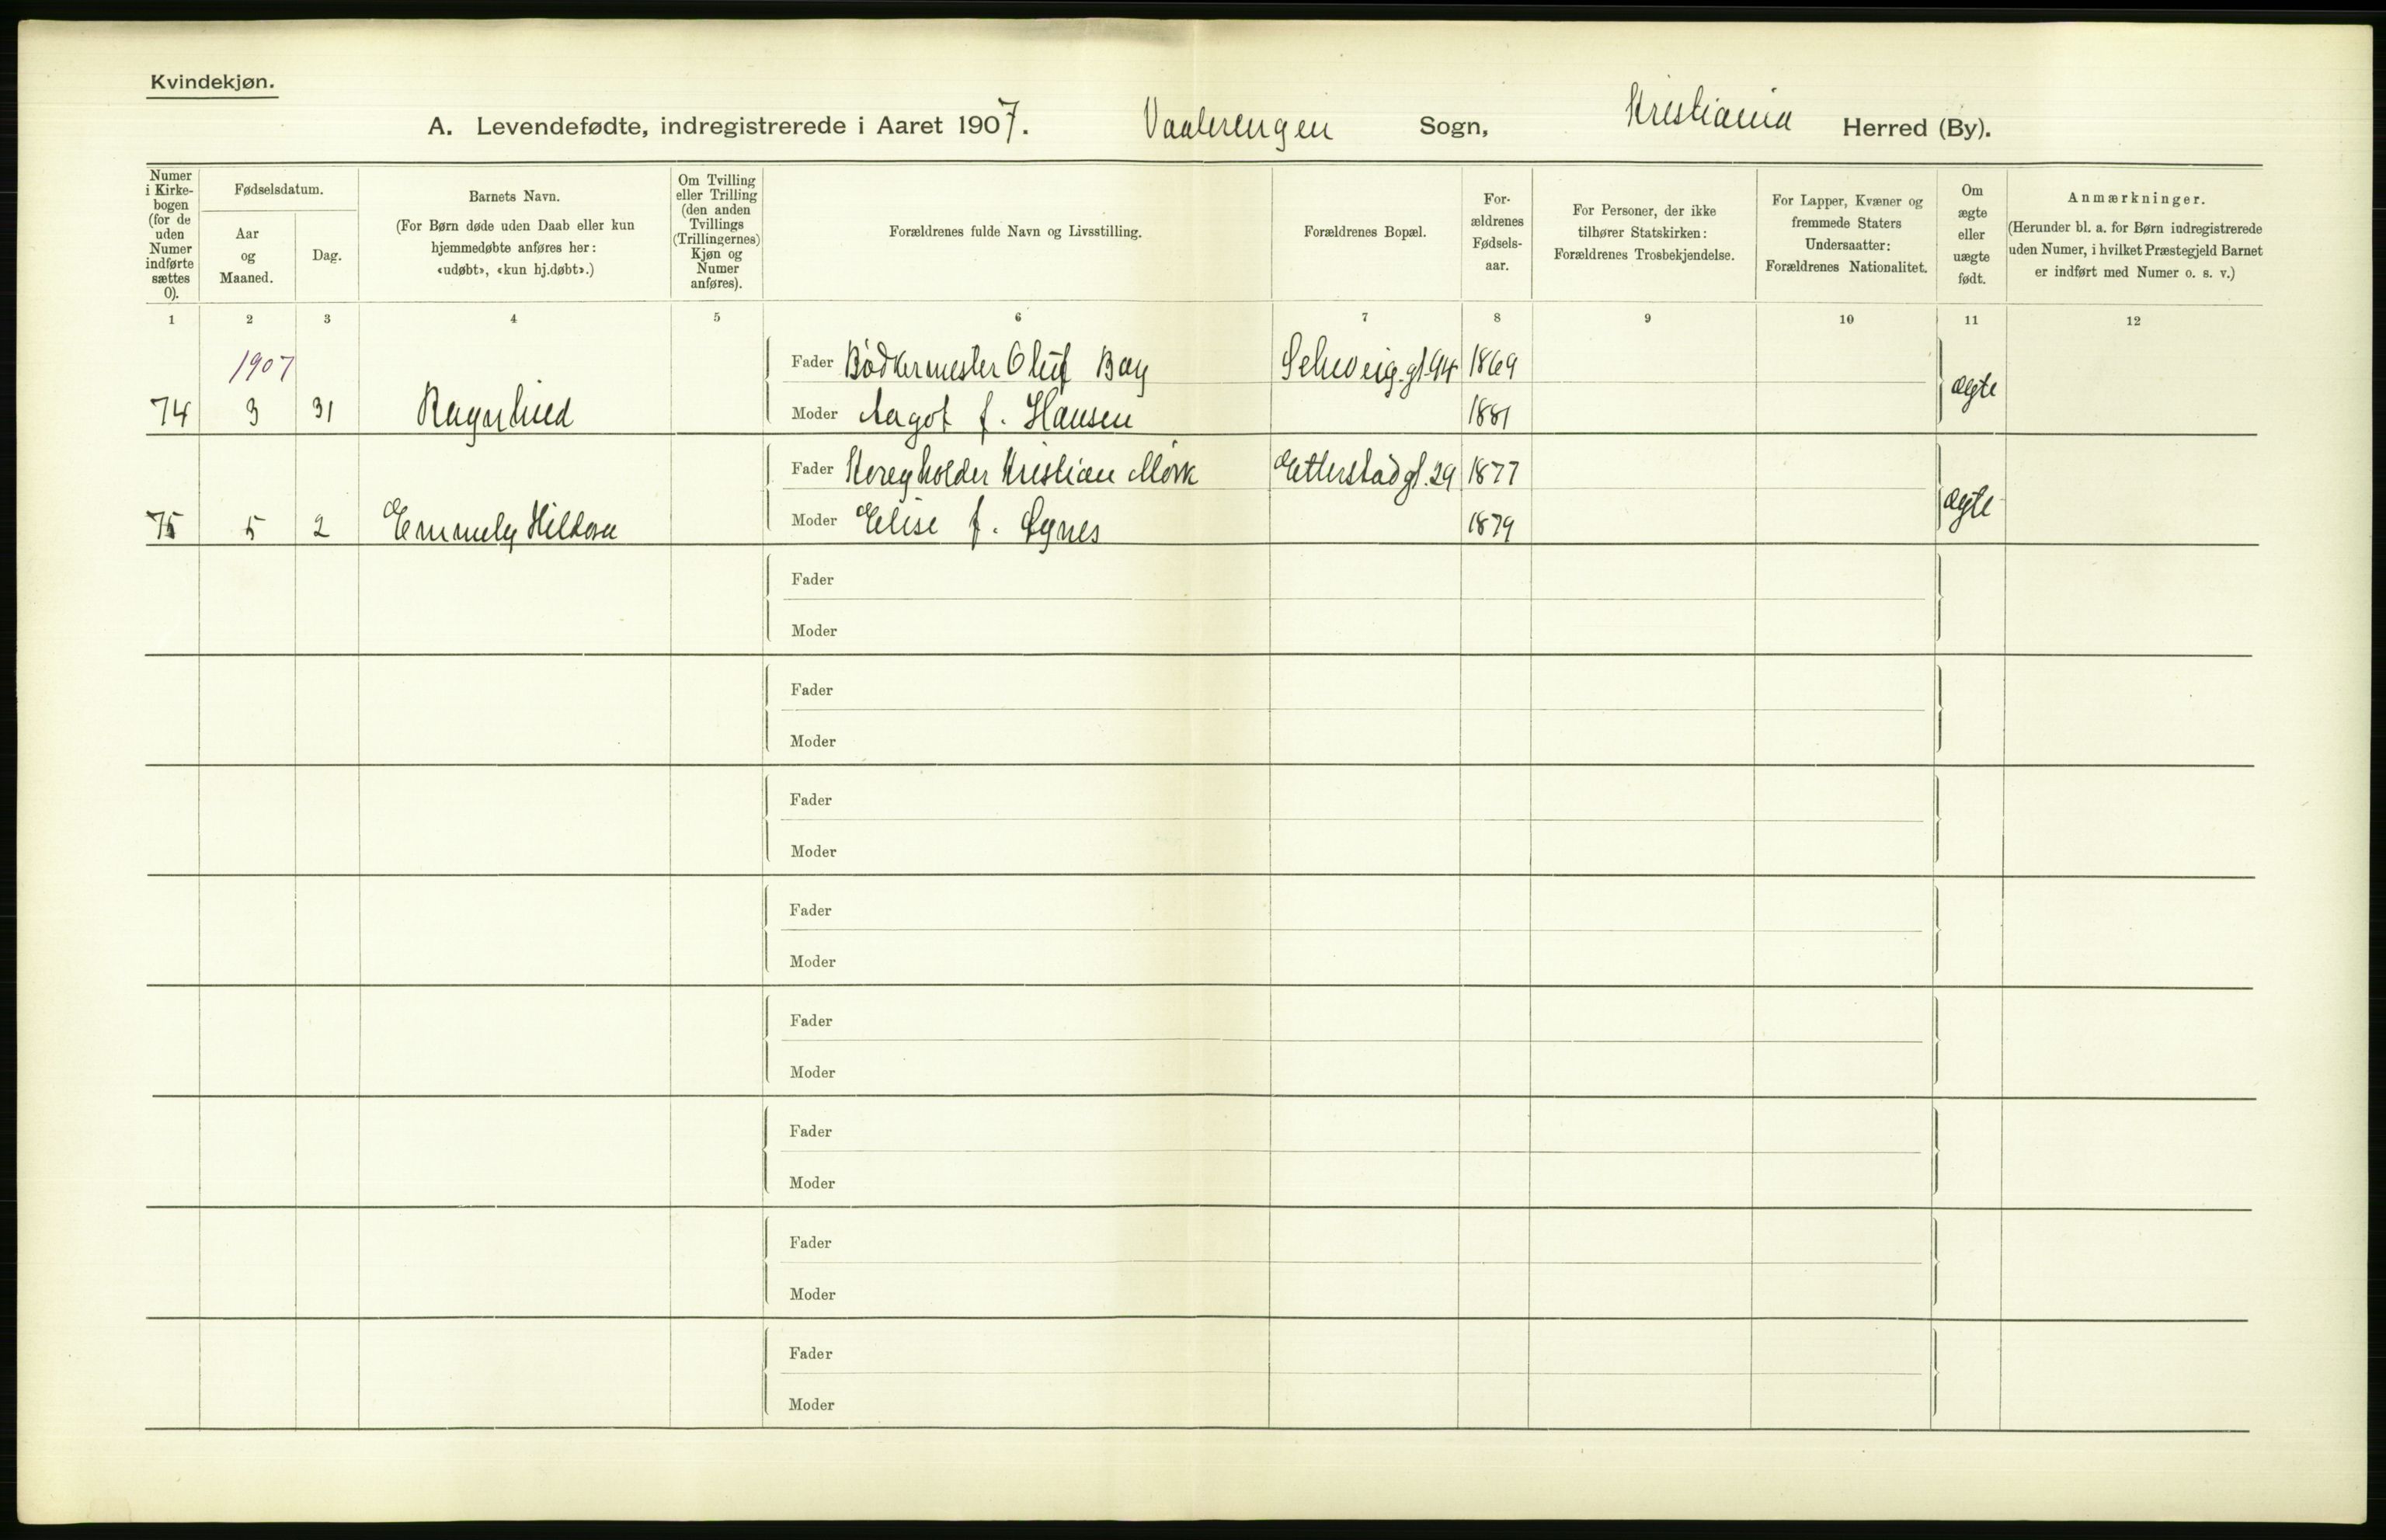 Kvindekjøn.
A. Levendefødte, indregistrerede i Aaret 1907. Vaalerengen Sogn, Kristiania Herred (By).
Numer i Kirkebogen (for de uden Numer indførte sættes 0).
Fødselsdatum.
Aar og Maaned.
Dag.
Barnets Navn.
(For Børn døde uden Daab eller kun hjemmedøbte anføres her: «udøbt», «kun hj.døbt».)
Om Tvilling eller Trilling (den anden Tvillings (Trillingernes) Kjøn og Numer anføres).
Forældrenes fulde Navn og Livsstilling.
Forældrenes Bopæl.
Forældrenes Fødselsaar.
For Personer, der ikke tilhører Statskirken: Forældrenes Trosbekjendelse.
For Lapper, Kvæner og fremmede Staters Undersaatter: Forældrenes Nationalitet.
Om ægte eller uægte født.
Anmærkninger.
(Herunder bl. a. for Børn indregistrerede uden Numer, i hvilket Præstegjeld Barnet er indført med Numer o. s. v.)
1 2 3 4 5 6 7 8 9 10 11 12
1907 Fader Bødkermester Oluf Bay 1869
74 3 31 Ragnhild Moder Aagot f. Hansen 1881 ægte
Fader Kristian Mørk Etterstadgt. 29 1877
75 5 2 Emmely Moder Elise f. 1879 ægte
Fader
Moder
Fader
Moder
Fader
Moder
Fader
Moder
Fader
Moder
Fader
Moder
Fader
Moder
Fader
Moder